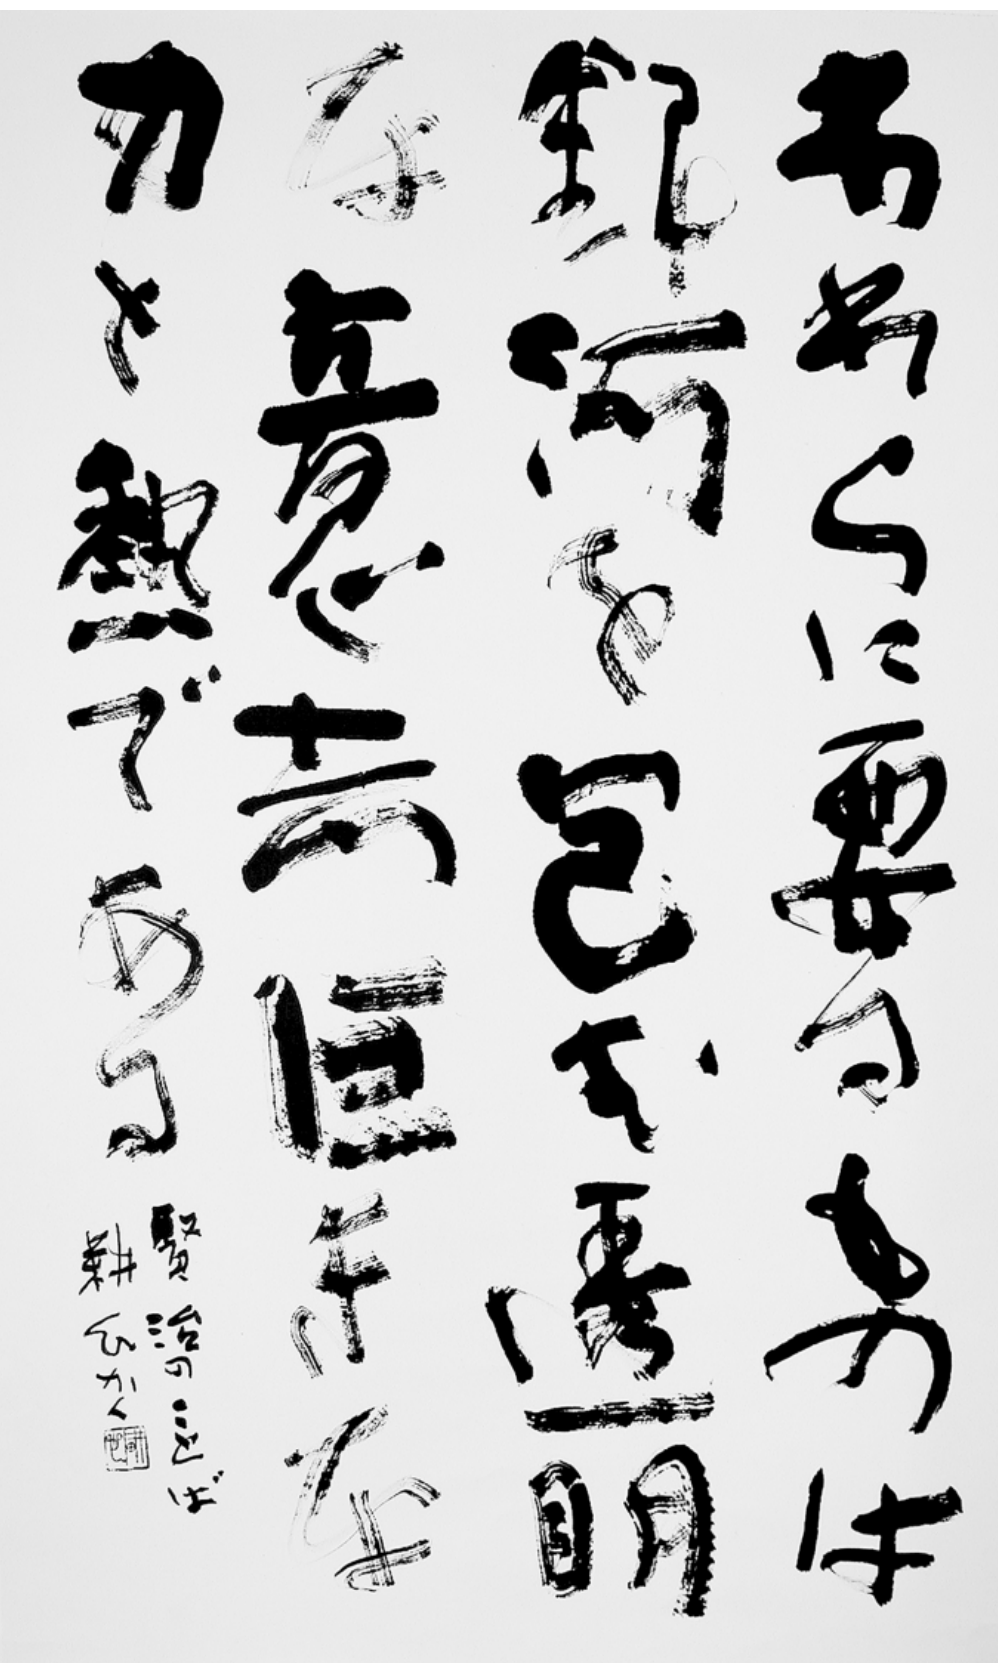 われらに要るものは
銀河を包む透明
な意志巨きな
力と熱である
賢治のことば
耕石かく